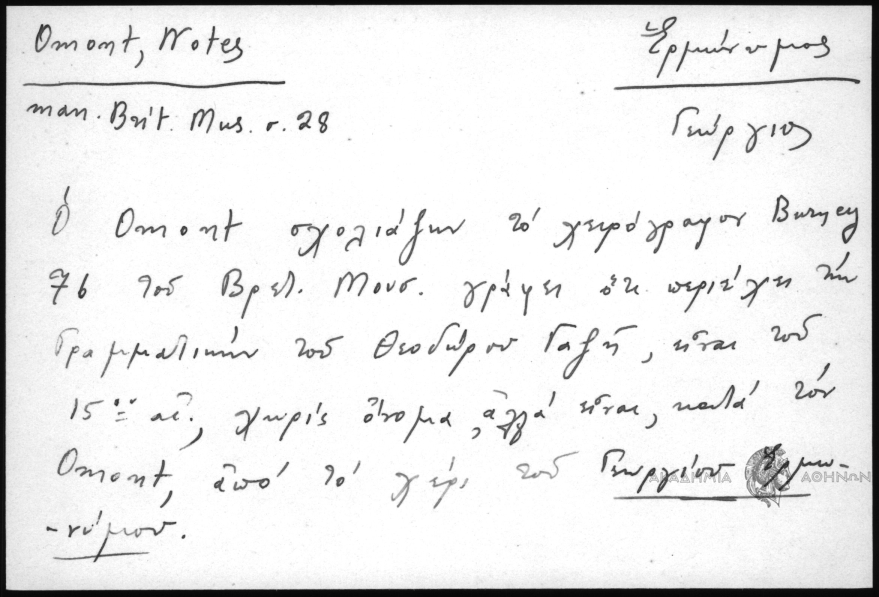 Omont, Notes
man. Brit. Mus. σ. 28
Ἑρμώνυμος
Γεώργιος
Ὁ Omont σχολιάζων τὸ χειρόγραφον Burney
76 τοῦ Βρετ. Μουσ. γράφει ὅτι περιέχει τὴν
Γραμματικὴν τοῦ Θεοδώρου Γαζῆ, εἶναι τοῦ
15ου αἰ., χωρὶς ὄνομα, ἀλλὰ εἶναι, κατὰ τὸν
Omont, ἀπὸ τὸ χέρι τοῦ Γεωργίου Ἑρμω-
-νύμου.
ΑΚΑΔΗΜΙΑ ΑΘΗΝΩΝ